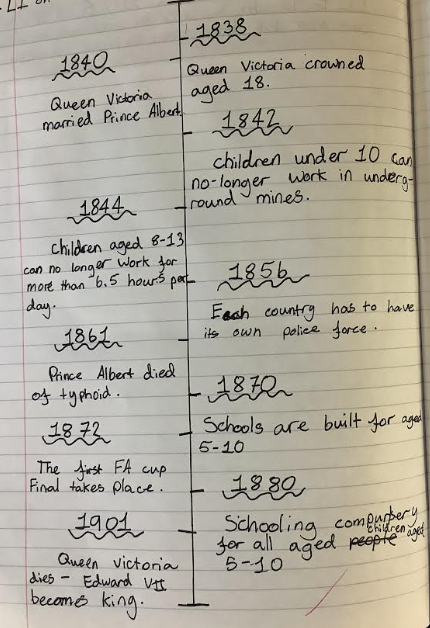 1838
Queen Victoria crowned
aged 18.
1840
Queen Victoria
married Prince Albert
1842
children under 10 can
no-longer work in underg-
round mines.
1844
children aged 8-13
can no longer work for
more than 6.5 hours per
day.
1856
Each country has to have
its own police force.
1861
Prince Albert died
of typhoid.
1870
Schools are built for aged
5-10
1872
The first FA cup
Final takes place.
1880
Schooling compurbery
for all aged people children aged
5-10
1901
Queen victoria
dies - Edward VII
becomes king.